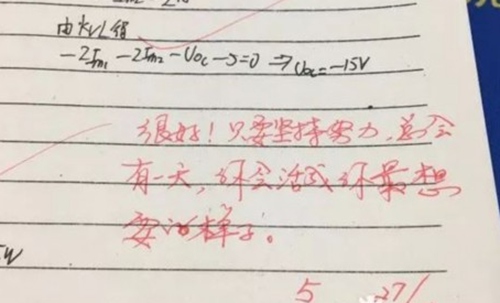 由KVL得
-2Im1-2Im2-Uoc-5=0 ⇒Uoc=-15V
很好！只要坚持努力,总会
有一天，你会活成你最想
要的样子。
W
5 27/